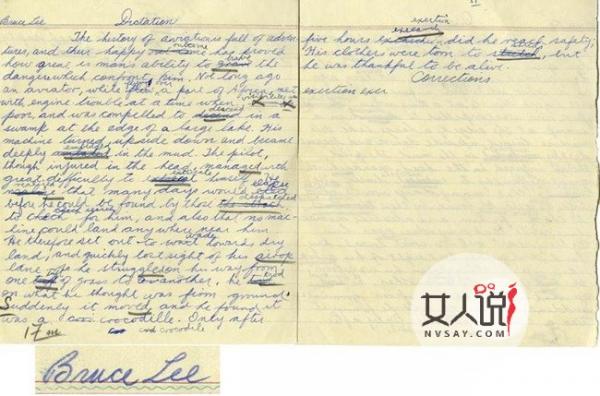 Bruce Lee Dictation
The history of aviation is full of adven
tures, and their happy outcome has proved
how great is man's ability to brave the
dangers which confront him. Not long ago
an aviator, while flying over a part of Africa, met
with engine trouble at a time when visibility was
poor, and was compelled to descend in a
swamp at the edge of a large lake. His
machine turned upside down and became
deeply embedded in the mud. The pilot,
though injured in the head managed with
great difficulty to himself. He
that many days would elapse
before he could be found by those
to for him, and also that no mac-
hine could land anywhere near him
He therefore set out to wade towards dry
land, and quickly lost sight of his airop
lane as he struggled on his way from
one of grass to another. He
on what he thought was firm ground
Suddenly it moved, and he found it
was a crocodile. Only after
17
crocodile
II
exertion
five hours did he reach safety;
His clothes were torn to, but
he was thankful to be alive.
Corrections
exertion exer
Bruce Lee
女人说
NVSAY.COM